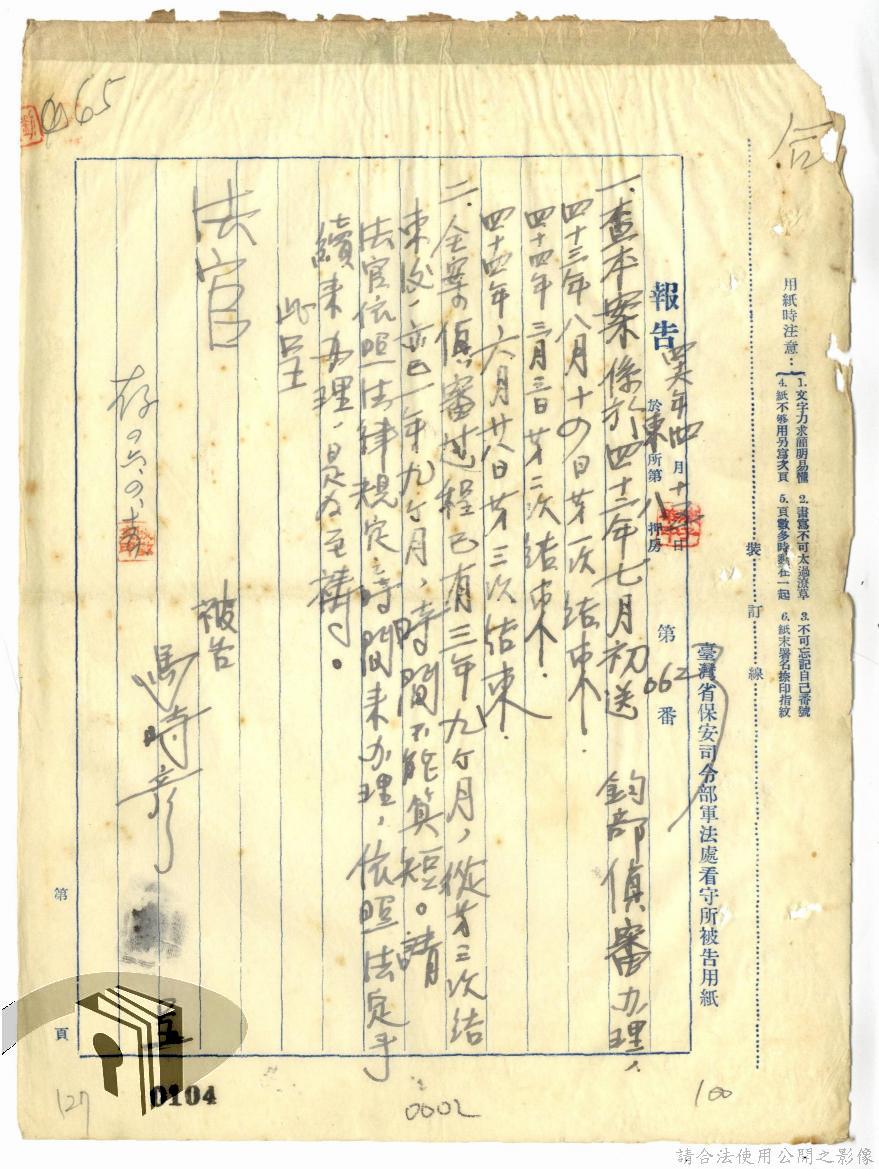 065
用紙時注意：
1. 文字力求簡明易懂 2. 書寫不可太過潦草 3. 不可忘記自己番號
4. 紙不够用另寫次頁 5. 頁數多時釘在一起 6. 紙末署名捺印指紋
裝訂線
臺灣省保安司令部軍法處看守所被告用紙
報告 四六年四月十六日 於東所第八押房 第062番
一、查本案係於四十二年七月初送 鈞部偵審办理，
四十三年八月十四日第一次結束．
四十四年三月三日第二次結束．
四十四年六月廿八日第三次結束．
二、全案の偵審过程已有三年九个月，從第三次結
束後，亦已一年九个月，時間不能算短。請
法官依照法律規定時間来办理，依照法定手
續来办理，是为至禱。
此呈
法官
被告 馬時彥
存
第 五 頁
127
0104
0002
100
請合法使用公開之影像